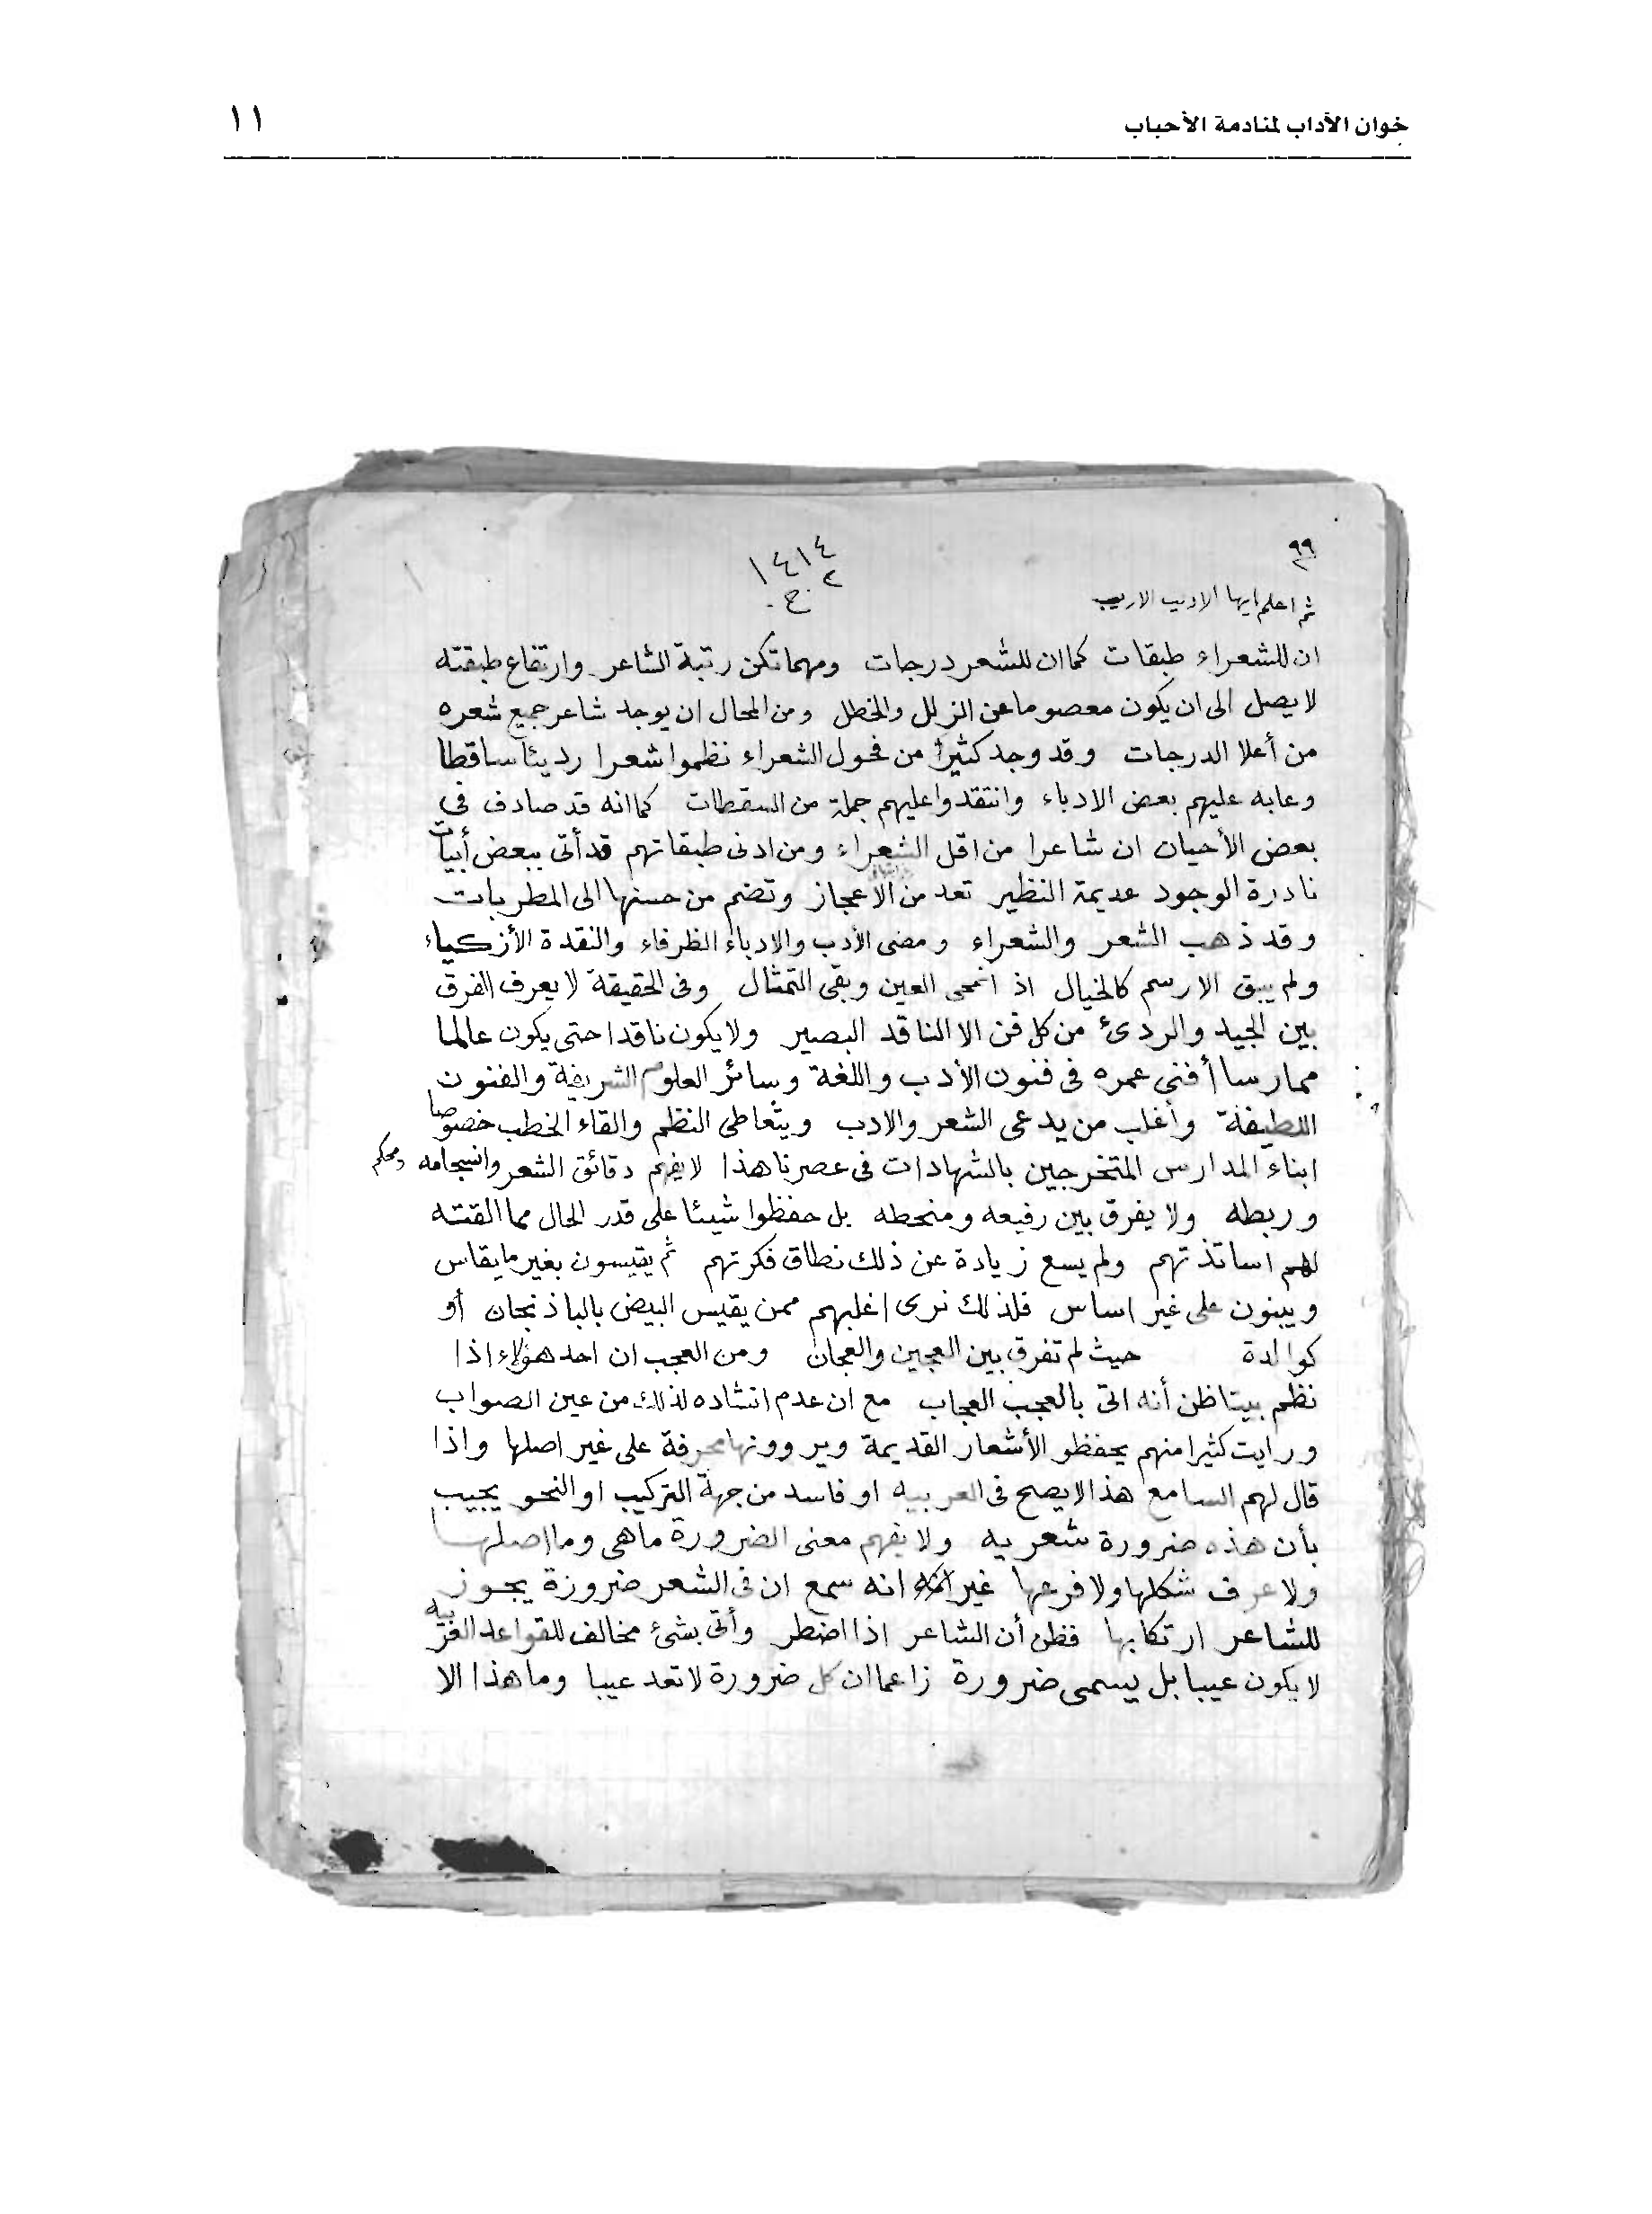 خوان الأداب لمنادمة الأحباب
١١
٩٩
١٤١٤
٢ ج.
ثم اعلم ايها الاديب الاريب
ان للشعراء طبقات كما ان للشعر درجات ومهما تكن رتبة الشاعر وارتفاع طبقته
لا يصل الى ان يكون معصوما عن الزلل والخطل ومن المحال ان يوجد شاعر جميع شعره
من أعلا الدرجات وقد وجد كثيرا من فحول الشعراء نظموا شعرا رديئا ساقطا
وعابه عليهم بعض الادباء وانتقدوا عليهم جملة من السقطات كما انه قد صادف فى
بعض الأحيان ان شاعرا من اقل الشعراء ومن ادنى طبقاتهم قد أتى ببعض أبيات
نادرة الوجود عديمة النظير تعد من الاعجاز وتضم من حسنها الى المطربات
وقد ذهب الشعر والشعراء ومضى الأدب والادباء الظرفاء والنقدة الأزكياء
ولم يبق الا رسم كالخيال اذ انمحى العين وبقى التمثال وفى الحقيقة لا يعرف الفرق
بين الجيد والردئ من كل فن الا الناقد البصير ولا يكون ناقدا حتى يكون عالما
ممارسا أفنى عمره فى فنون الأدب واللغة وسائر العلوم الشريفة والفنون
اللطيفة وأغلب من يدعى الشعر والادب ويتعاطى النظم والقاء الخطب خصوصا
ابناء المدارس المتخرجين بالشهادات فى عصرنا هذا لا يفهم دقائق الشعر وانسجامه ومحكم
وربطه ولا يفرق بين رفيعه ومنحطه بل حفظوا شيئا على قدر الحال مما القته
لهم اساتذتهم ولم يسع زيادة عن ذلك نطاق فكرتهم ثم يقيسون بغير ما يقاس
ويبنون على غير اساس فلذلك نرى اغلبهم ممن يقيس البيض بالباذنجان أو
كوالدة حيث لم تفرق بين العجين والعجان ومن العجب ان احد هؤلاء اذا
نظم بيتا ظن أنه اتى بالعجب العجاب مع ان عدم انشاده لذلك من عين الصواب
ورايت كثيرا منهم يحفظو الأشعار القديمة ويروونها محرفة على غير اصلها واذا
قال لهم السامع هذا لا يصح فى العربيه او فاسد من جهة التركيب او النحو يجيب
بأن هذه ضرورة شعريه ولا يفهم معنى الضرورة ماهى وما اصلها
ولا عرف شكلها ولا فرعها غير انه سمع ان فى الشعر ضرورة يجوز
للشاعر ارتكابها فظن أن الشاعر اذا اضطر وأتى بشئ مخالف للقواعد العربيه
لا يكون عيبا بل يسمى ضرورة زاعما ان كل ضرورة لا تعد عيبا وما هذا الا